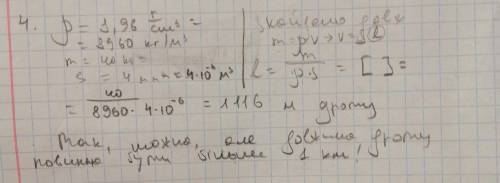 4. ρ = 8,96 г/cm³ =
= 8960 кг/м³
m = 40 кг
s = 4 мм = 4·10⁻⁶ м²
Знайдемо довж
m = ρ·v → v = S l
l = m/ρ·s = [ ] =
= 40/8960·4·10⁻⁶ = 1116 м дроту
Так, можна, але довжина дроту
повинна бути більше 1 км!